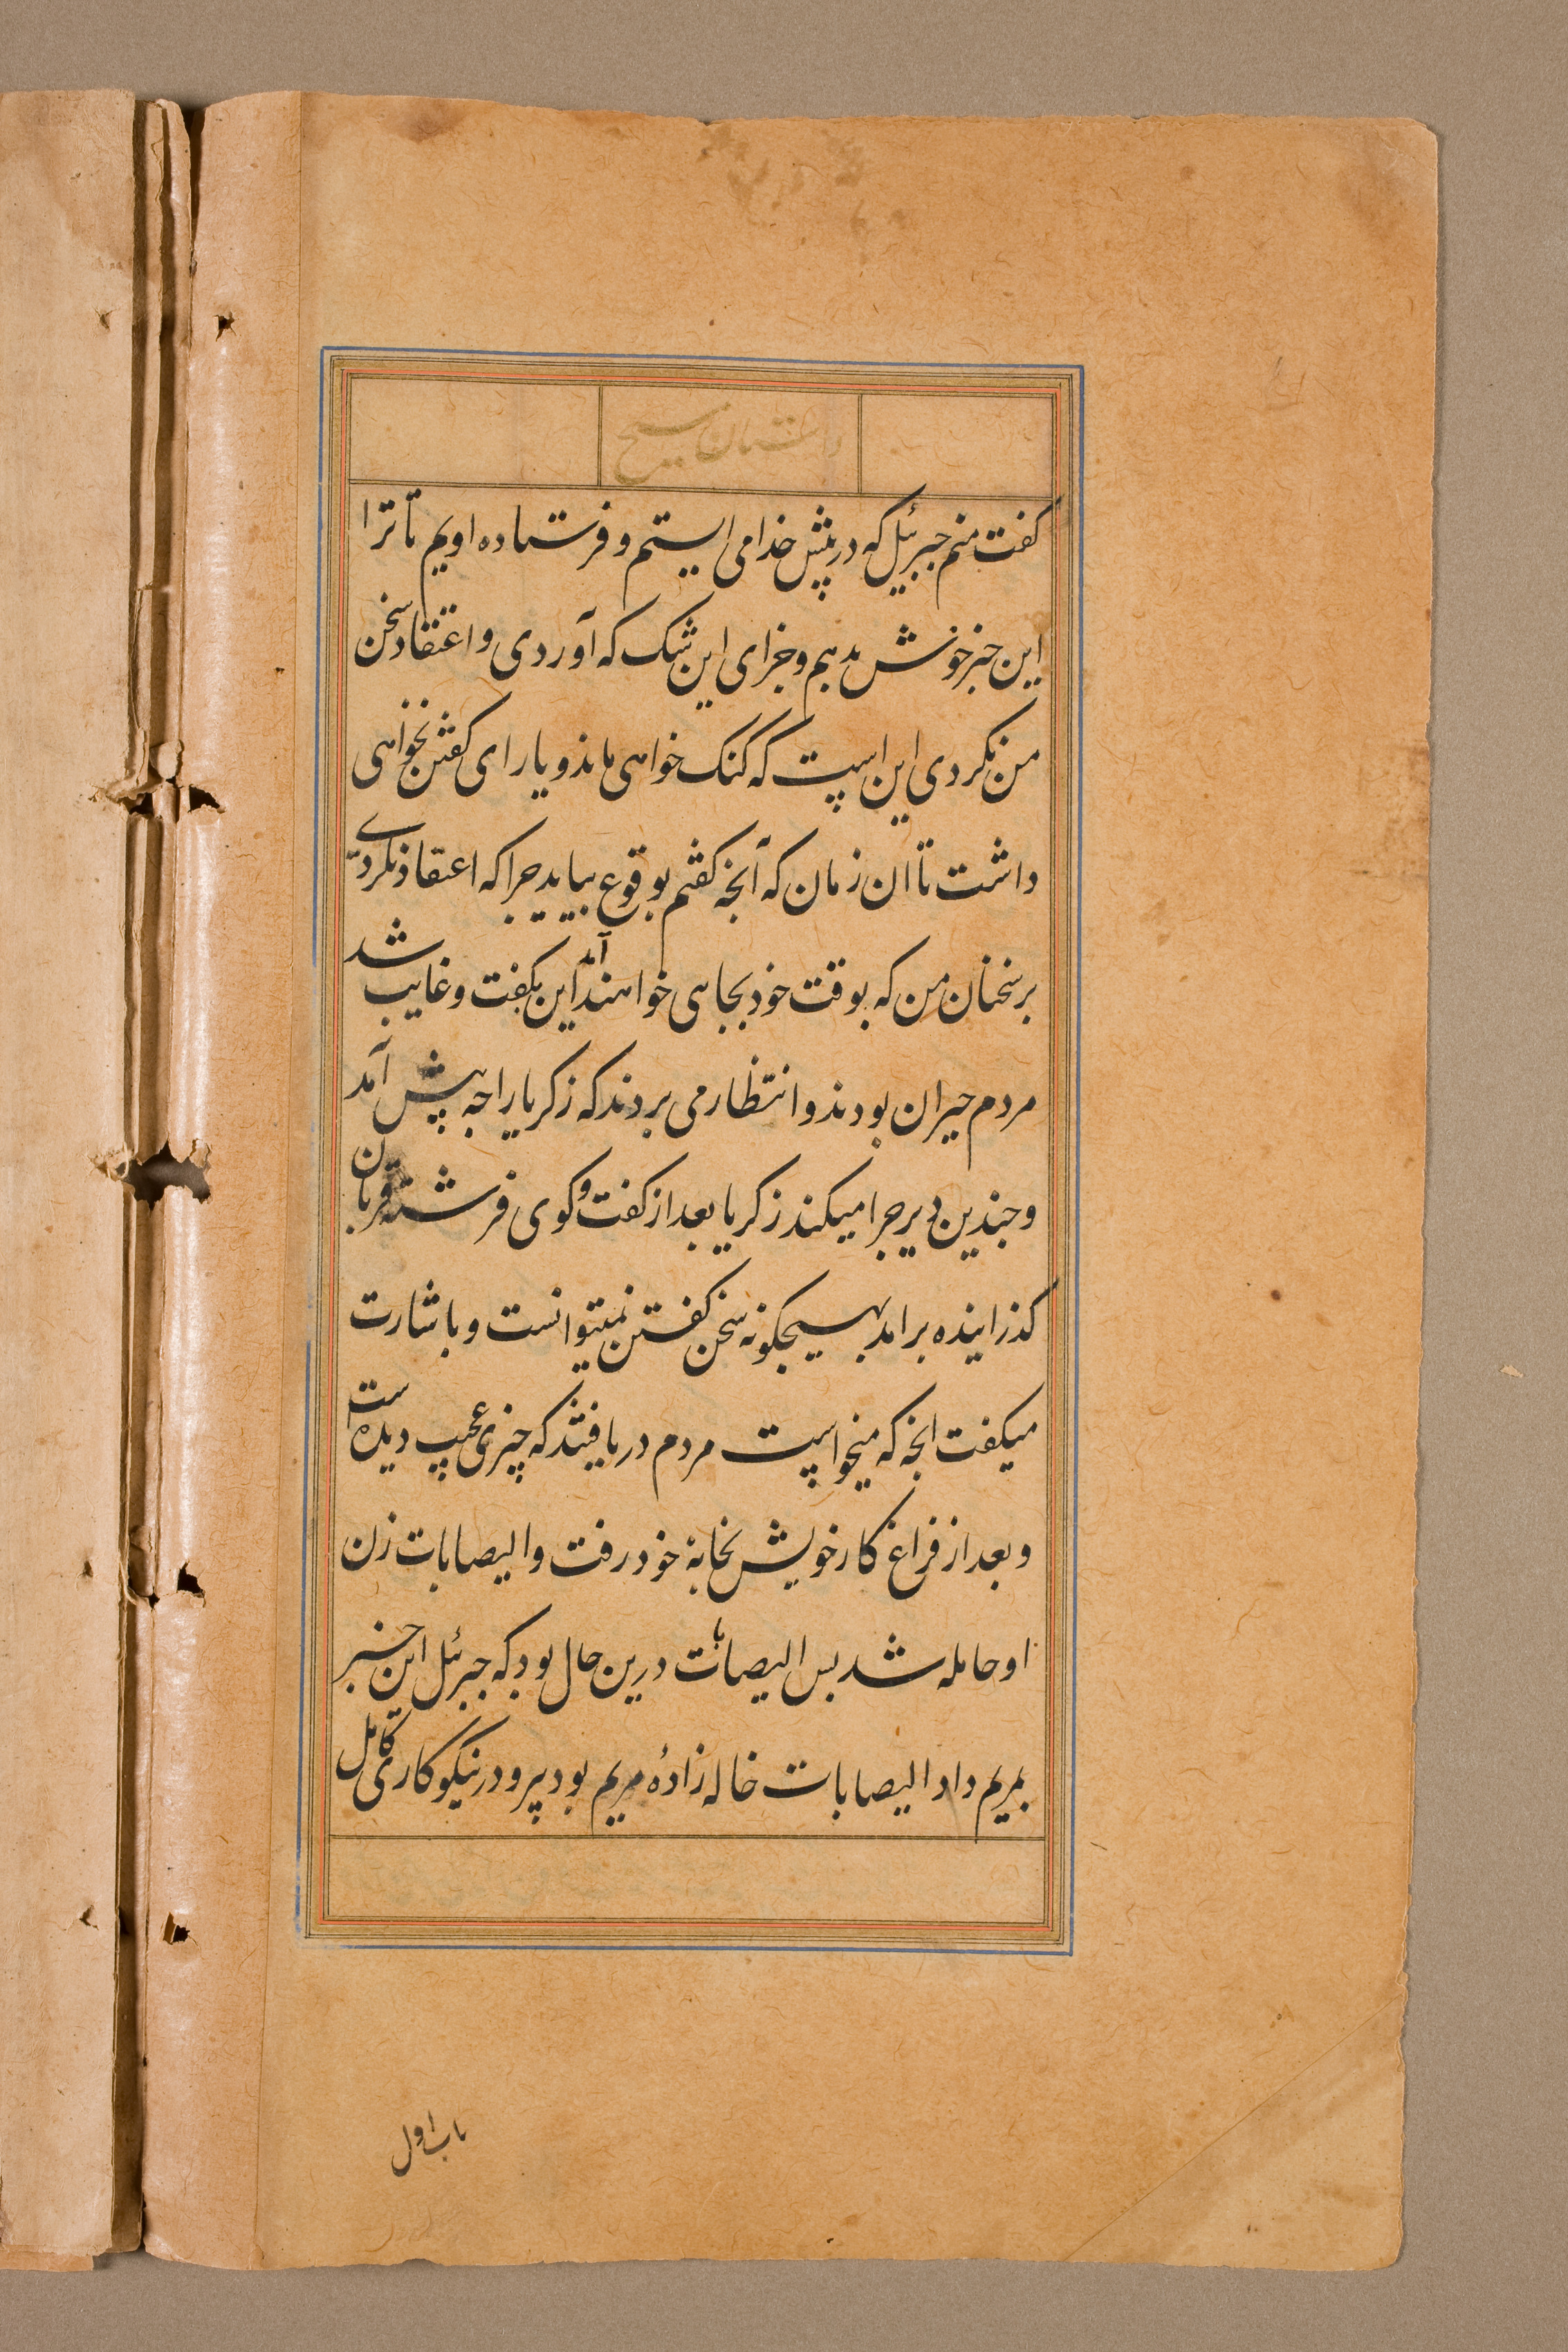 داستان مسیح
کفت منم جبرئیل که در پیش خدا می ایستم و فرستاده اویم تا ترا
این خبر خوش بدهم و جزای این شک که آوردی و اعتقاد سخن
من نکردی این است که کنک خواهی ماند و یارای کفتن نخواهی
داشت تا ان زمان که آنجه کفتم بوقوع بیاید جرا که اعتقاد نکردی
بر سخنان من که بوقت خود بجا می خواهند آمد این بکفت و غایب شد
مردم حیران بودند و انتظار می بردند که زکریا را جه پیش آمد
و جندین دیر جرا میکند زکریا بعد از کفت و کوی فرشته قربان
کذرانیده برامد بهیچکونه سخن کفتن نمیتوانست و باشارت
میکفت انجه که میخواست مردم دریافتند که چیزی عجیب دیده است
و بعد از فراغ کار خویش بخانهٔ خود رفت و الیصابات زن
او حامله شد بس الیصابات درین حال بود که جبرئیل این خبر
بمریم داد الیصابات خاله زادهٔ مریم بود پیر و در نیکوکاری کامل
باب اول